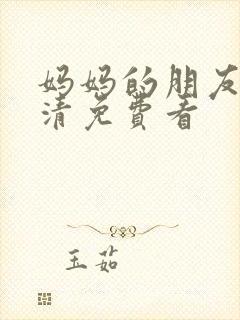 妈妈的朋友
清免费看
玉茹